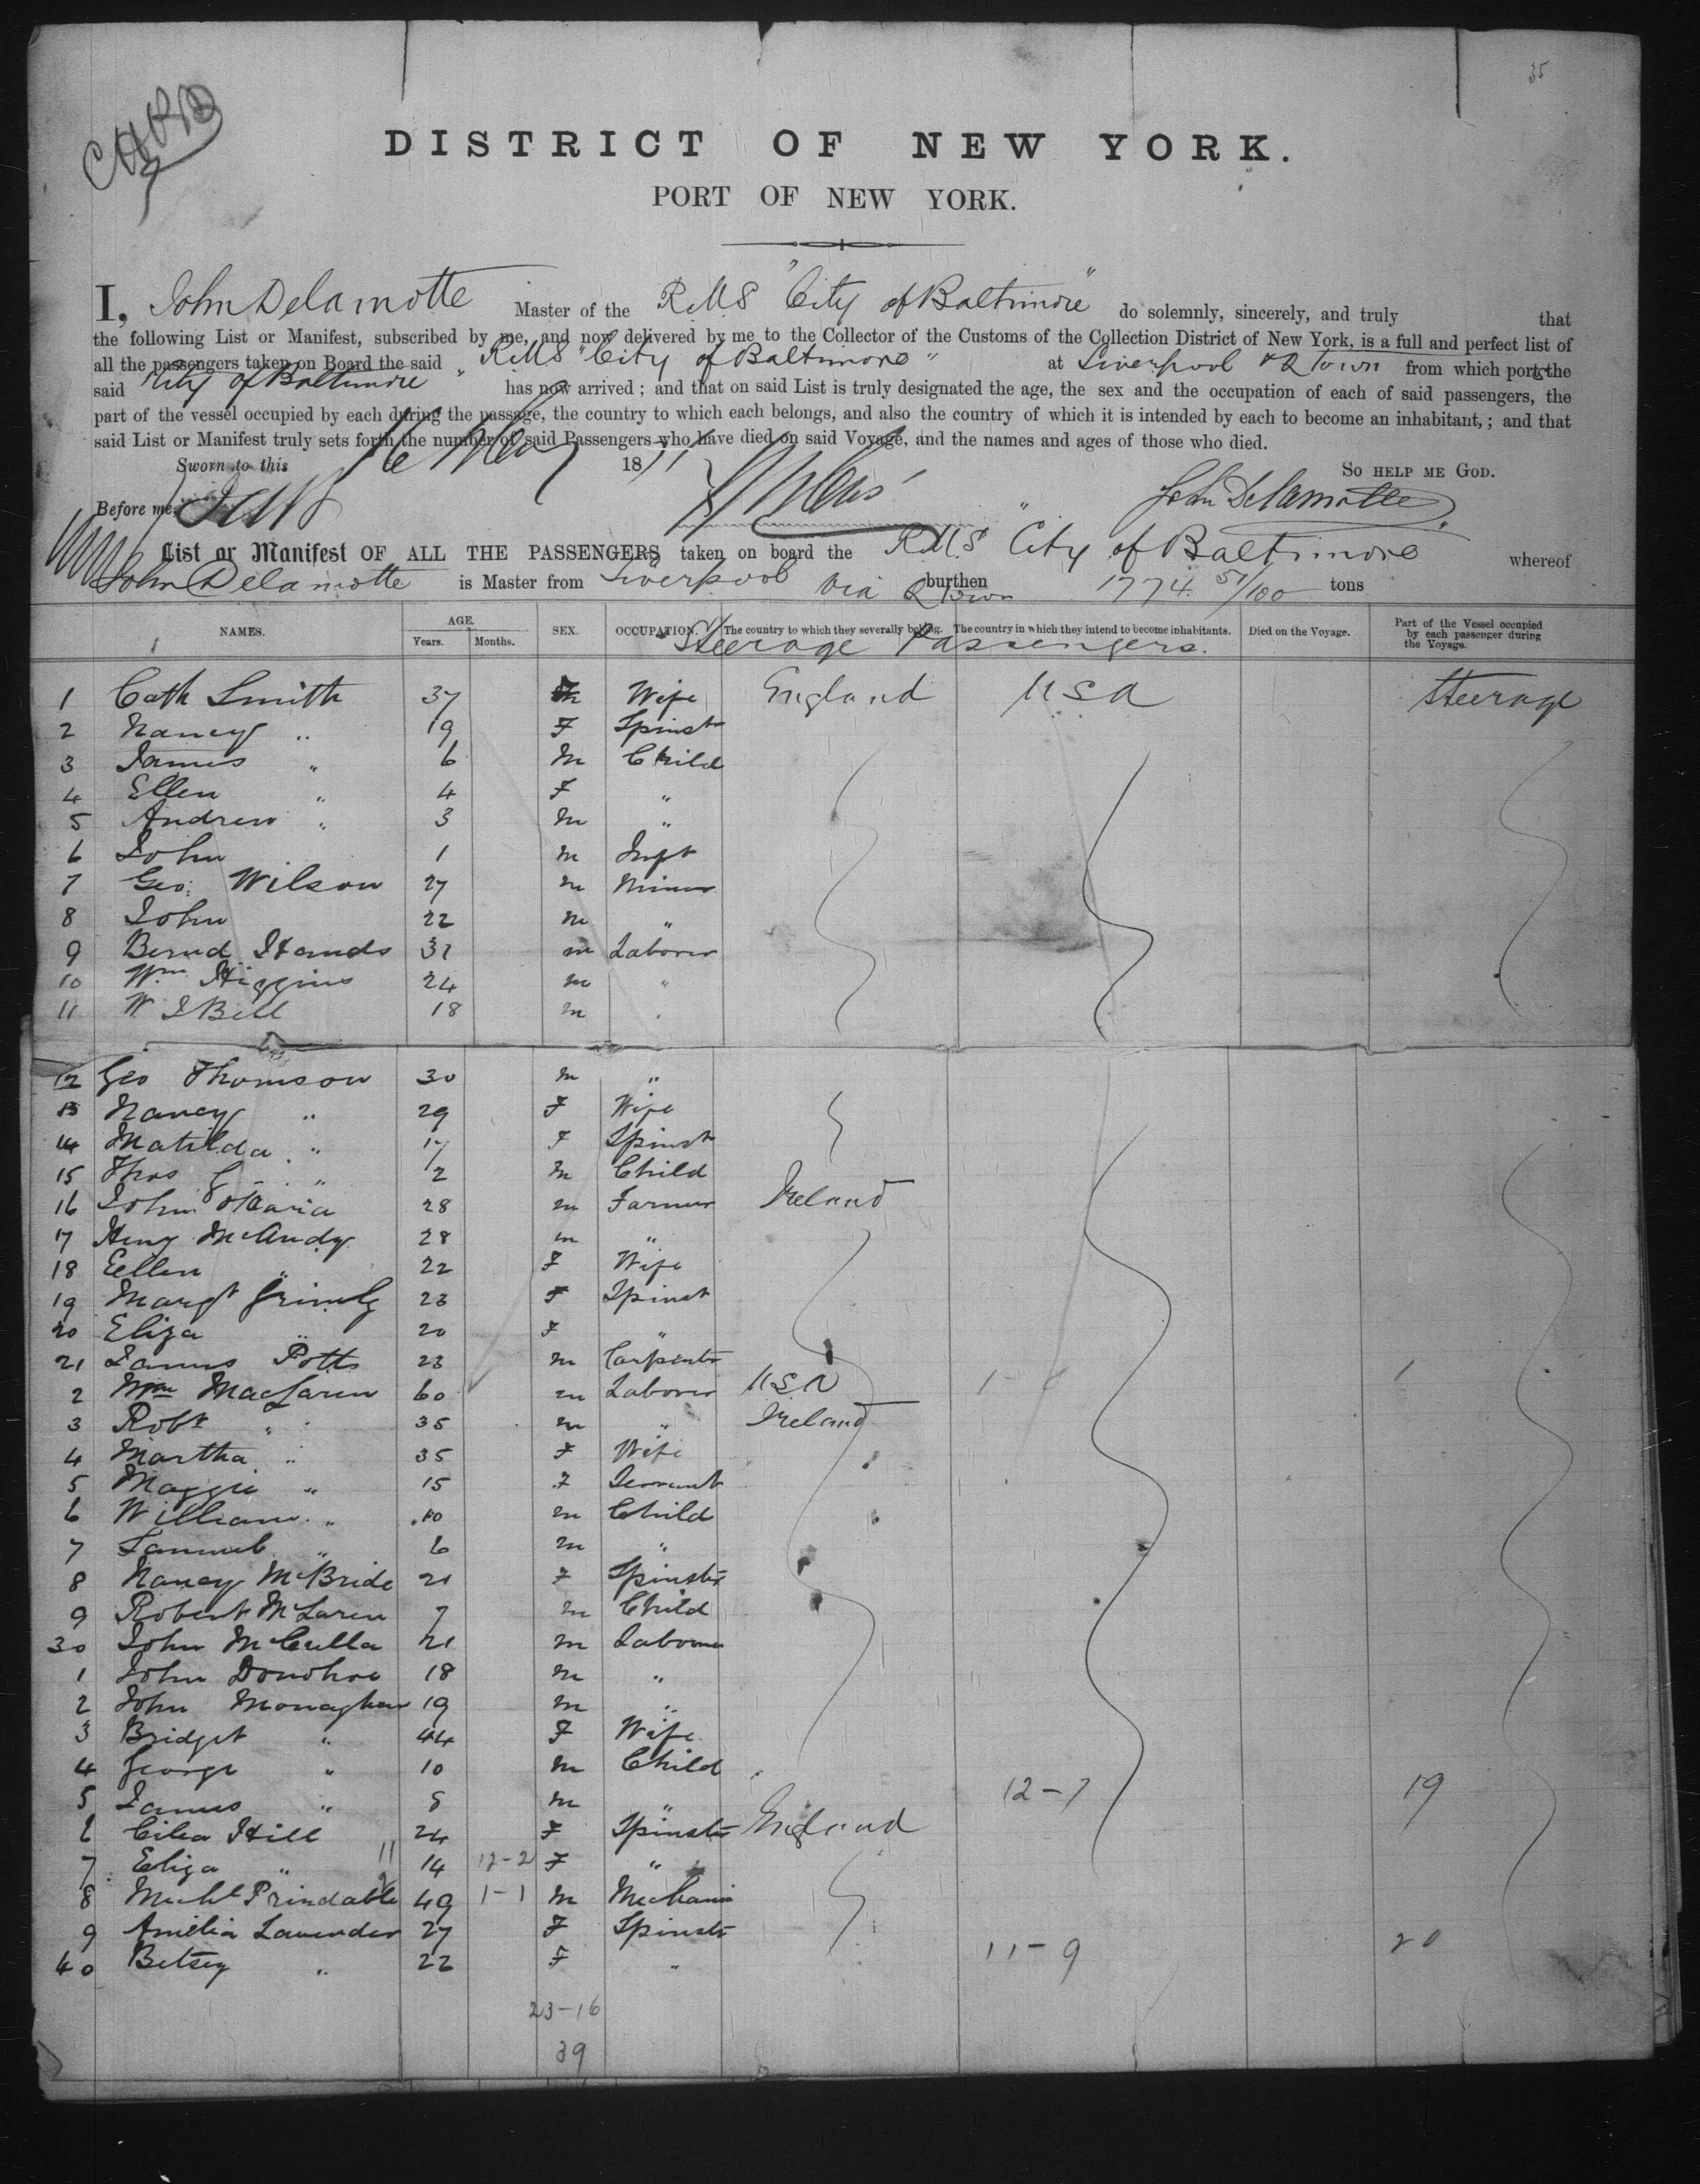 35
CARD
DISTRICT OF NEW YORK.
PORT OF NEW YORK.
I, John Delamotte Master of the RMS "City of Baltimore" do solemnly, sincerely, and truly that
the following List or Manifest, subscribed by me, and now delivered by me to the Collector of the Customs of the Collection District of New York, is a full and perfect list of
all the passengers taken on Board the said RMS "City of Baltimore" at Liverpool & Qtown from which ports the
said City of Baltimore" has now arrived ; and that on said List is truly designated the age, the sex and the occupation of each of said passengers, the
part of the vessel occupied by each during the passage, the country to which each belongs, and also the country of which it is intended by each to become an inhabitant, ; and that
said List or Manifest truly sets forth the number of said Passengers who have died on said Voyage, and the names and ages of those who died.
Sworn to this 16 May 1871 So HELP ME GOD.
Before me, John Delamotte
List or Manifest OF ALL THE PASSENGERS taken on board the RMS "City of Baltimore" whereof
John Delamotte is Master from Liverpool via Qtown burthen 1774 51/100 tons
NAMES. AGE. Years. Months. SEX. OCCUPATION. The country to which they severally belong. The country in which they intend to become inhabitants. Died on the Voyage. Part of the Vessel occupied by each passenger during the Voyage.
Steerage Passengers.
1 Cath Smith 37 Wife England USA Steerage
2 Nancy " 19 F Spinstr
3 James " 6 M Child
4 Ellen " 4 F "
5 Andrew " 3 m "
6 John 1 m Inft
7 Geo: Wilson 27 m Miner
8 John 22 m "
9 Bernd Hands m Laborer
10 Wm Higgins 24 m "
11 W J Bell 18 m "
12 Geo Thomson 30 m "
13 Nancy " 29 F Wife
14 Matilda " 17 F Spinstr
15 Thos G " 2 m Child
16 John 28 m Farmer Ireland
17 Heny McAndy 28 m "
18 Ellen " 22 F Wife
19 Margt 23 F Spinst
20 Eliza " 20 F "
21 James Potts 23 m Carpentr
2 Wm MacLaren 60 m Laborer USA 1- 1
3 Robt " 35 m " Ireland
4 Martha " 35 F Wife
5 Maggie " 15 F Servant
6 William " 10 m Child
7 Samuel " 6 m "
8 Nancy McBride 21 F Spinstr
9 Robert McLaren 7 m Child
30 John McCulla 21 m Laborer
1 John Donohoe 18 m "
2 John Monaghan 19 m "
3 Bridget " 44 F Wife
4 George " 10 m Child
5 James " 8 m " 12-7 19
6 Hill 24 F Spinstr England
7 Eliza " 11 14 12-2 F "
8 Michl Prindable 49 1-1 m Mechanic
9 Amelia Lavender 27 F Spinstr
40 Betsey " 22 F " 11-9 20
23-16
39